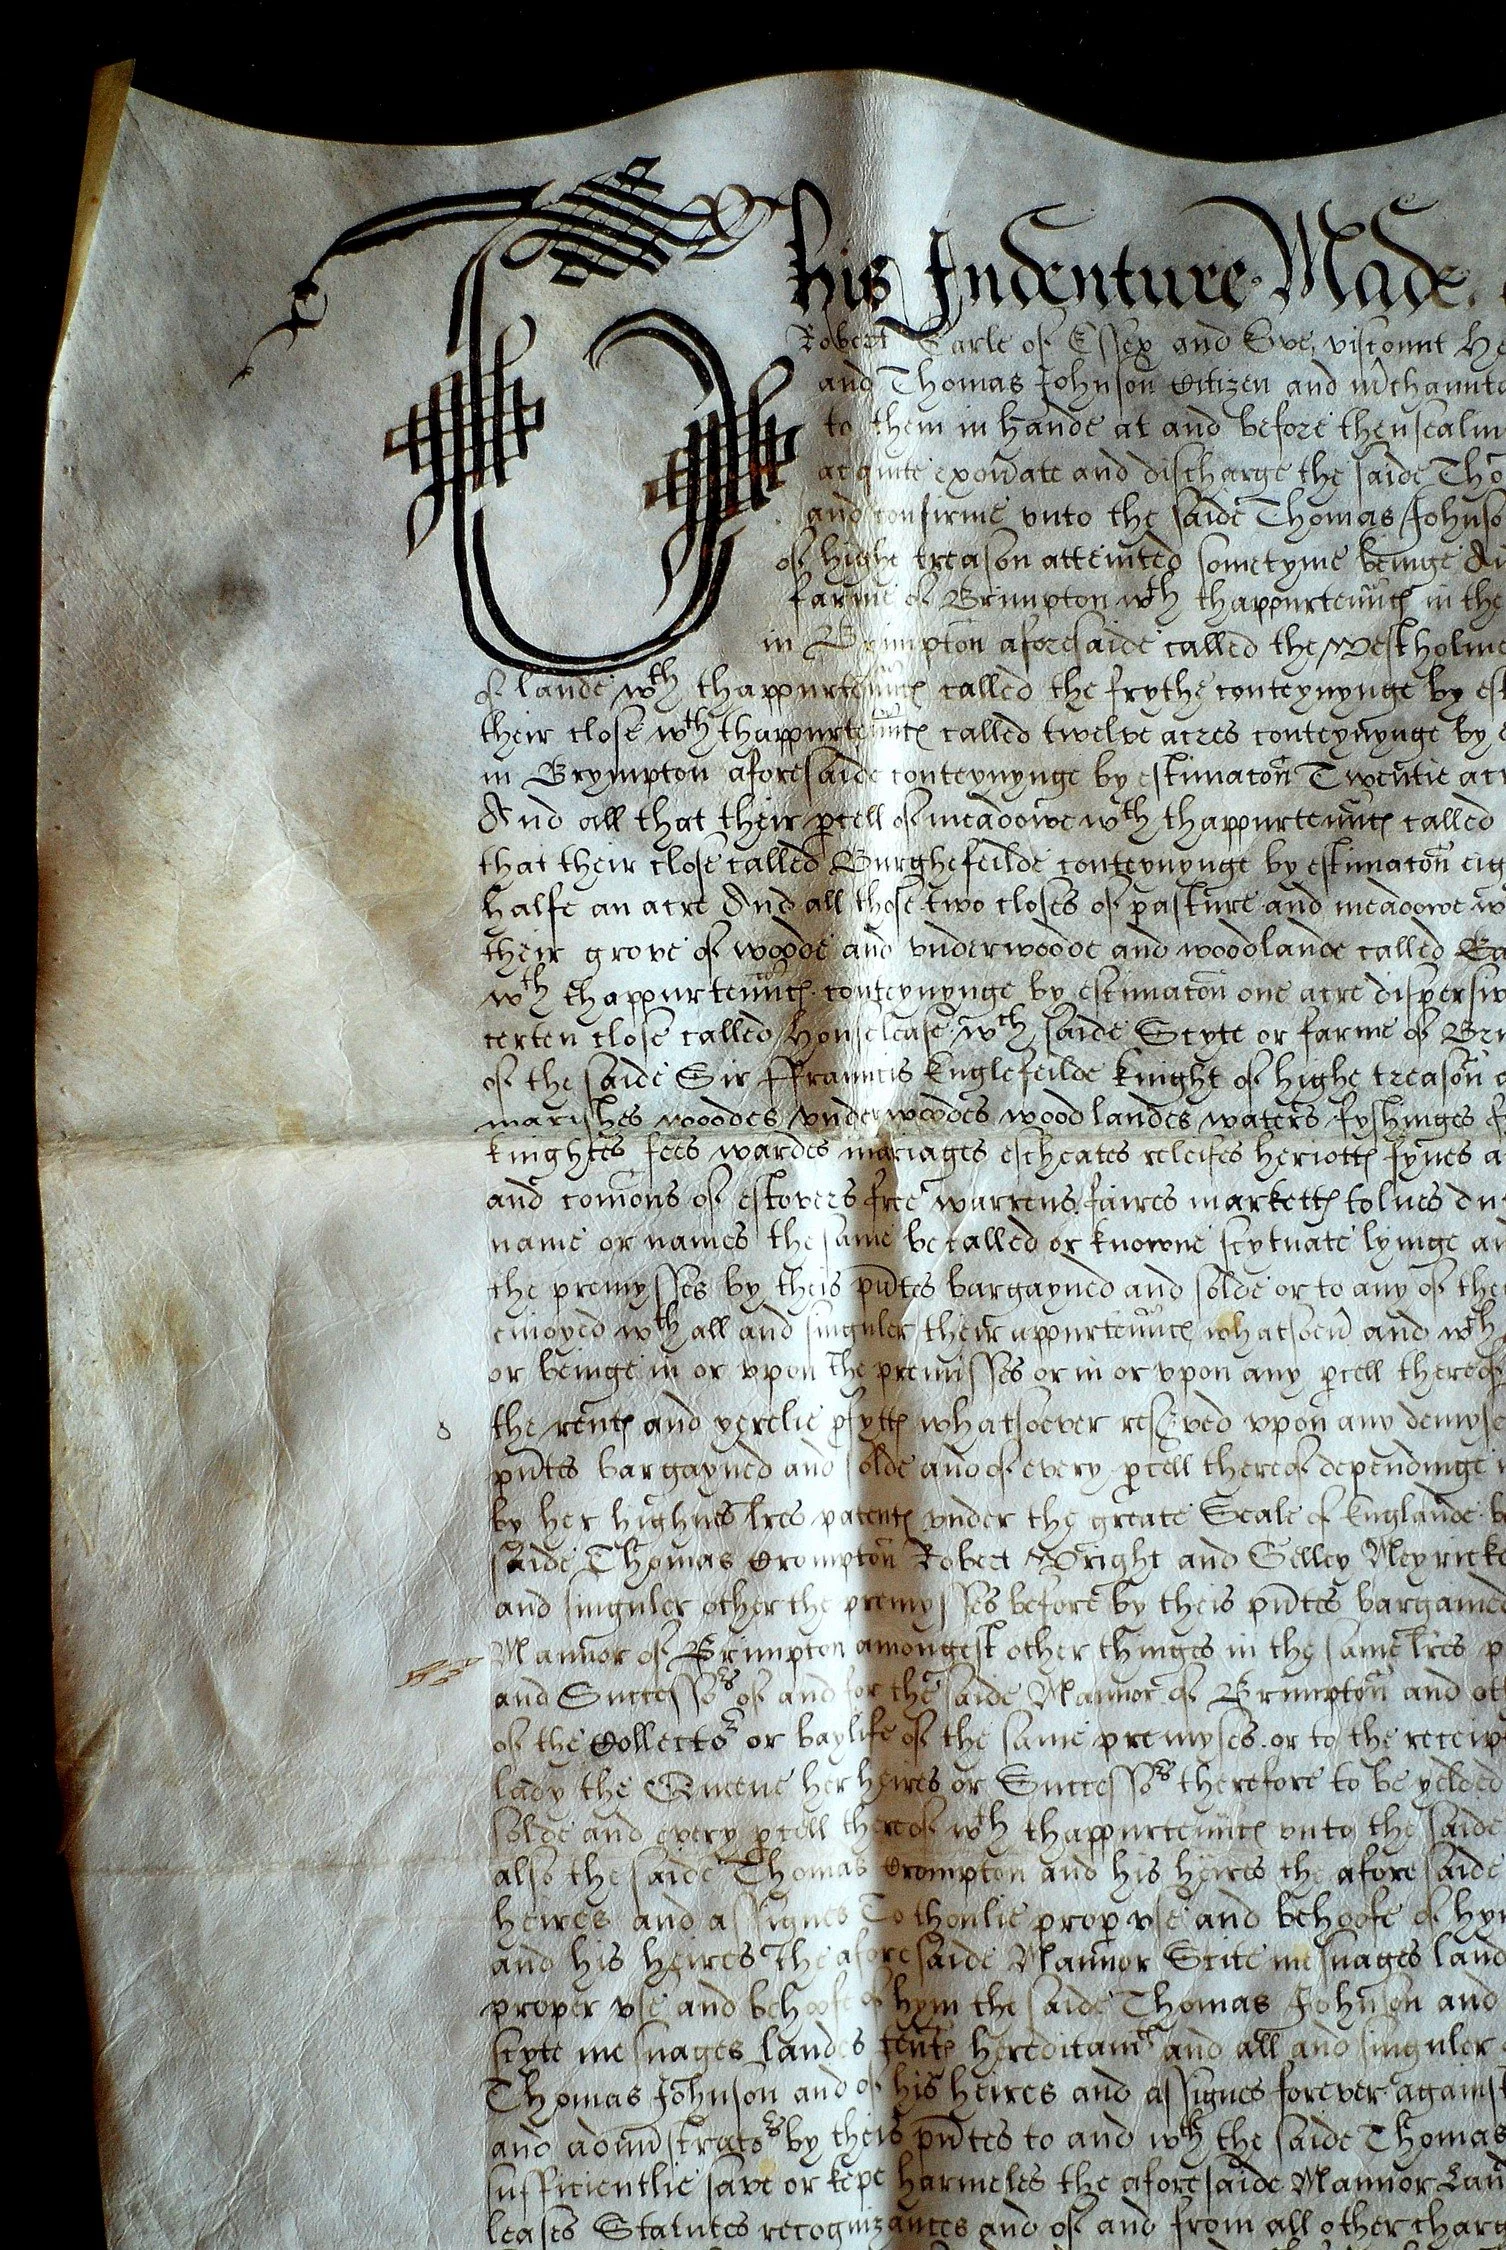 This Indenture Made
Robert Earle of Essex and Ewe, viscount He
and Thomas Johnson Citizen and m̃chaunt
to them in hande at and before thensealin
acquite exoñate and discharge the saide Tho
and confirme vnto the saide Thomas Johnso
of highe treason atteinted sometyme beinge
farme of Brimpton wth thappurteñnc in the
in Brimpton aforesaide called the Westholme
of lande wth thappurteñnc called the frythe conteynynge by est
their close wth thappurteñnc called twelve acres conteynynge by
in Brympton aforesaide conteynynge by estimac̃on Twentie acr
And all that their p̱cell of meadowe wth thappurteñnc called
that their close called Burghefeilde conteynynge by estimac̃on eig
halfe an acre And all those two closes of pasture and meadowe w
their grove of woode and vnderwoode and woodlande called
wth thappurteñnc conteynynge by estimac̃on one acre
certen close called Houselease wth saide Scyte or farme of Br
of the saide Sir ffrauncis Englefeilde knight of highe treason
marishes woodes vnderwoodes woodlandes waters fyshinges
knightes fees wardes mariages escheates releifes heriotts fynes a
and com̃ons of estovers free warrens faires marketts tolnes
name or names the same be called or knowne scytuate lyinge an
the premysses by theis p̃ntes bargayned and solde or to any of the
enioyed wth all and singuler their appurteñnc whatsoeũ and wth
or beinge in or vpon the premisses or in or vpon any p̱cell thereof
the rents and yerelie p̱fytts whatsoever res̃ved vpon any demyse
p̃ntes bargayned and solde and of every p̱cell thereof dependinge
by her highnes l̃res patents vnder the greate Seale of Englande
saide Thomas Crompton Robert Wright and Gelley Meyricke
and singuler other the premysses before by theis p̃ntes bargained
Mannor of Brimpton amongest other thinges in the same l̃res p
and Successors of and for the saide Mannor of Brimpton and oth
of the Collector or baylife of the same premyses or to the receiv
lady the Queene her heires or Successors therefore to be yelded
solde and every p̱cell thereof wth thappurteñnc vnto the saide
also the saide Thomas Crompton and his heires the aforesaide
heires and assignes To thonlie prop̱ vse and behoofe of hym
and his heires The aforesaide Mannor Scite mesuages land
proper vse and behoofe of hym the saide Thomas Johnson and
scyte mesuages landes tents hereditamts and all and singuler
Thomas Johnson and of his heires and assignes forever against
and adm̃strators by theis p̃ntes to and wth the saide Thomas
sufficientlie save or kepe harmeles the aforesaide Mannor Lan
leases Statutes recognizances and of and from all other charg